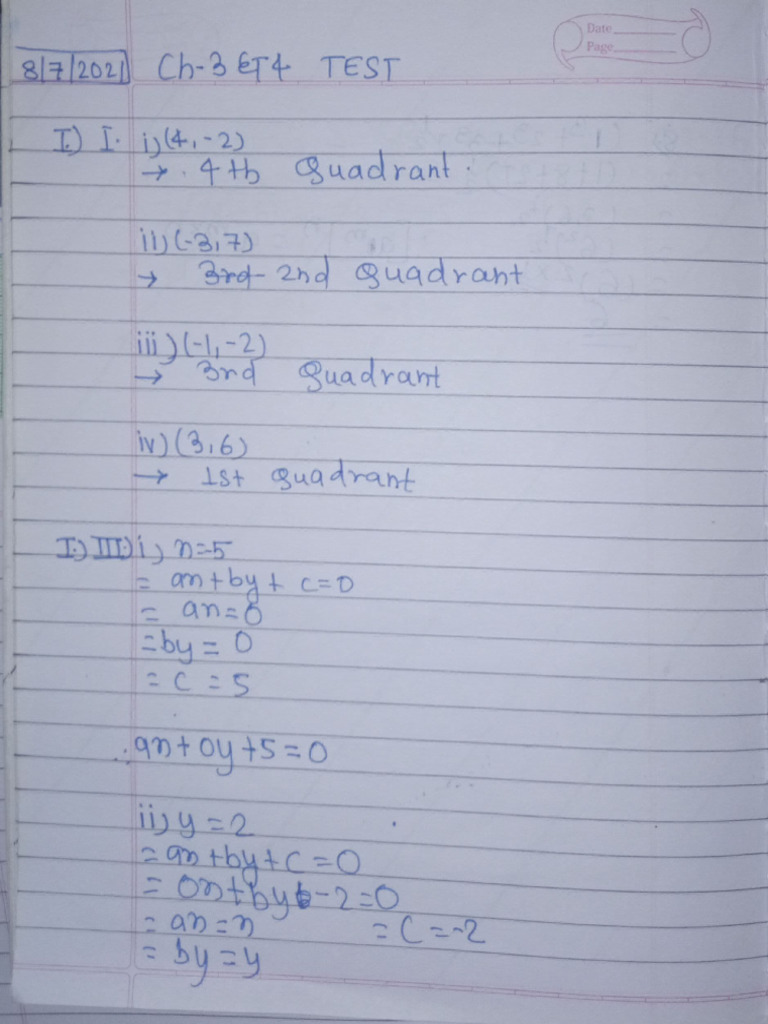 Date
Page
8/7/2021 Ch-3 & 4 TEST
I.) I. i) (4, -2)
→ . 4th Quadrant.
ii) (-3, 7)
→ 3rd 2nd Quadrant
iii) (-1, -2)
→ 3rd Quadrant
iv) (3, 6)
→ 1st Quadrant
I.) III.) i) x=-5
= ax + by + c = 0
= ax = 0
= by = 0
= c = 5
∴ ax + 0y + 5 = 0
ii) y = 2
= ax + by + c = 0
= 0x + by - 2 = 0
= ax = x = c = -2
= by = y